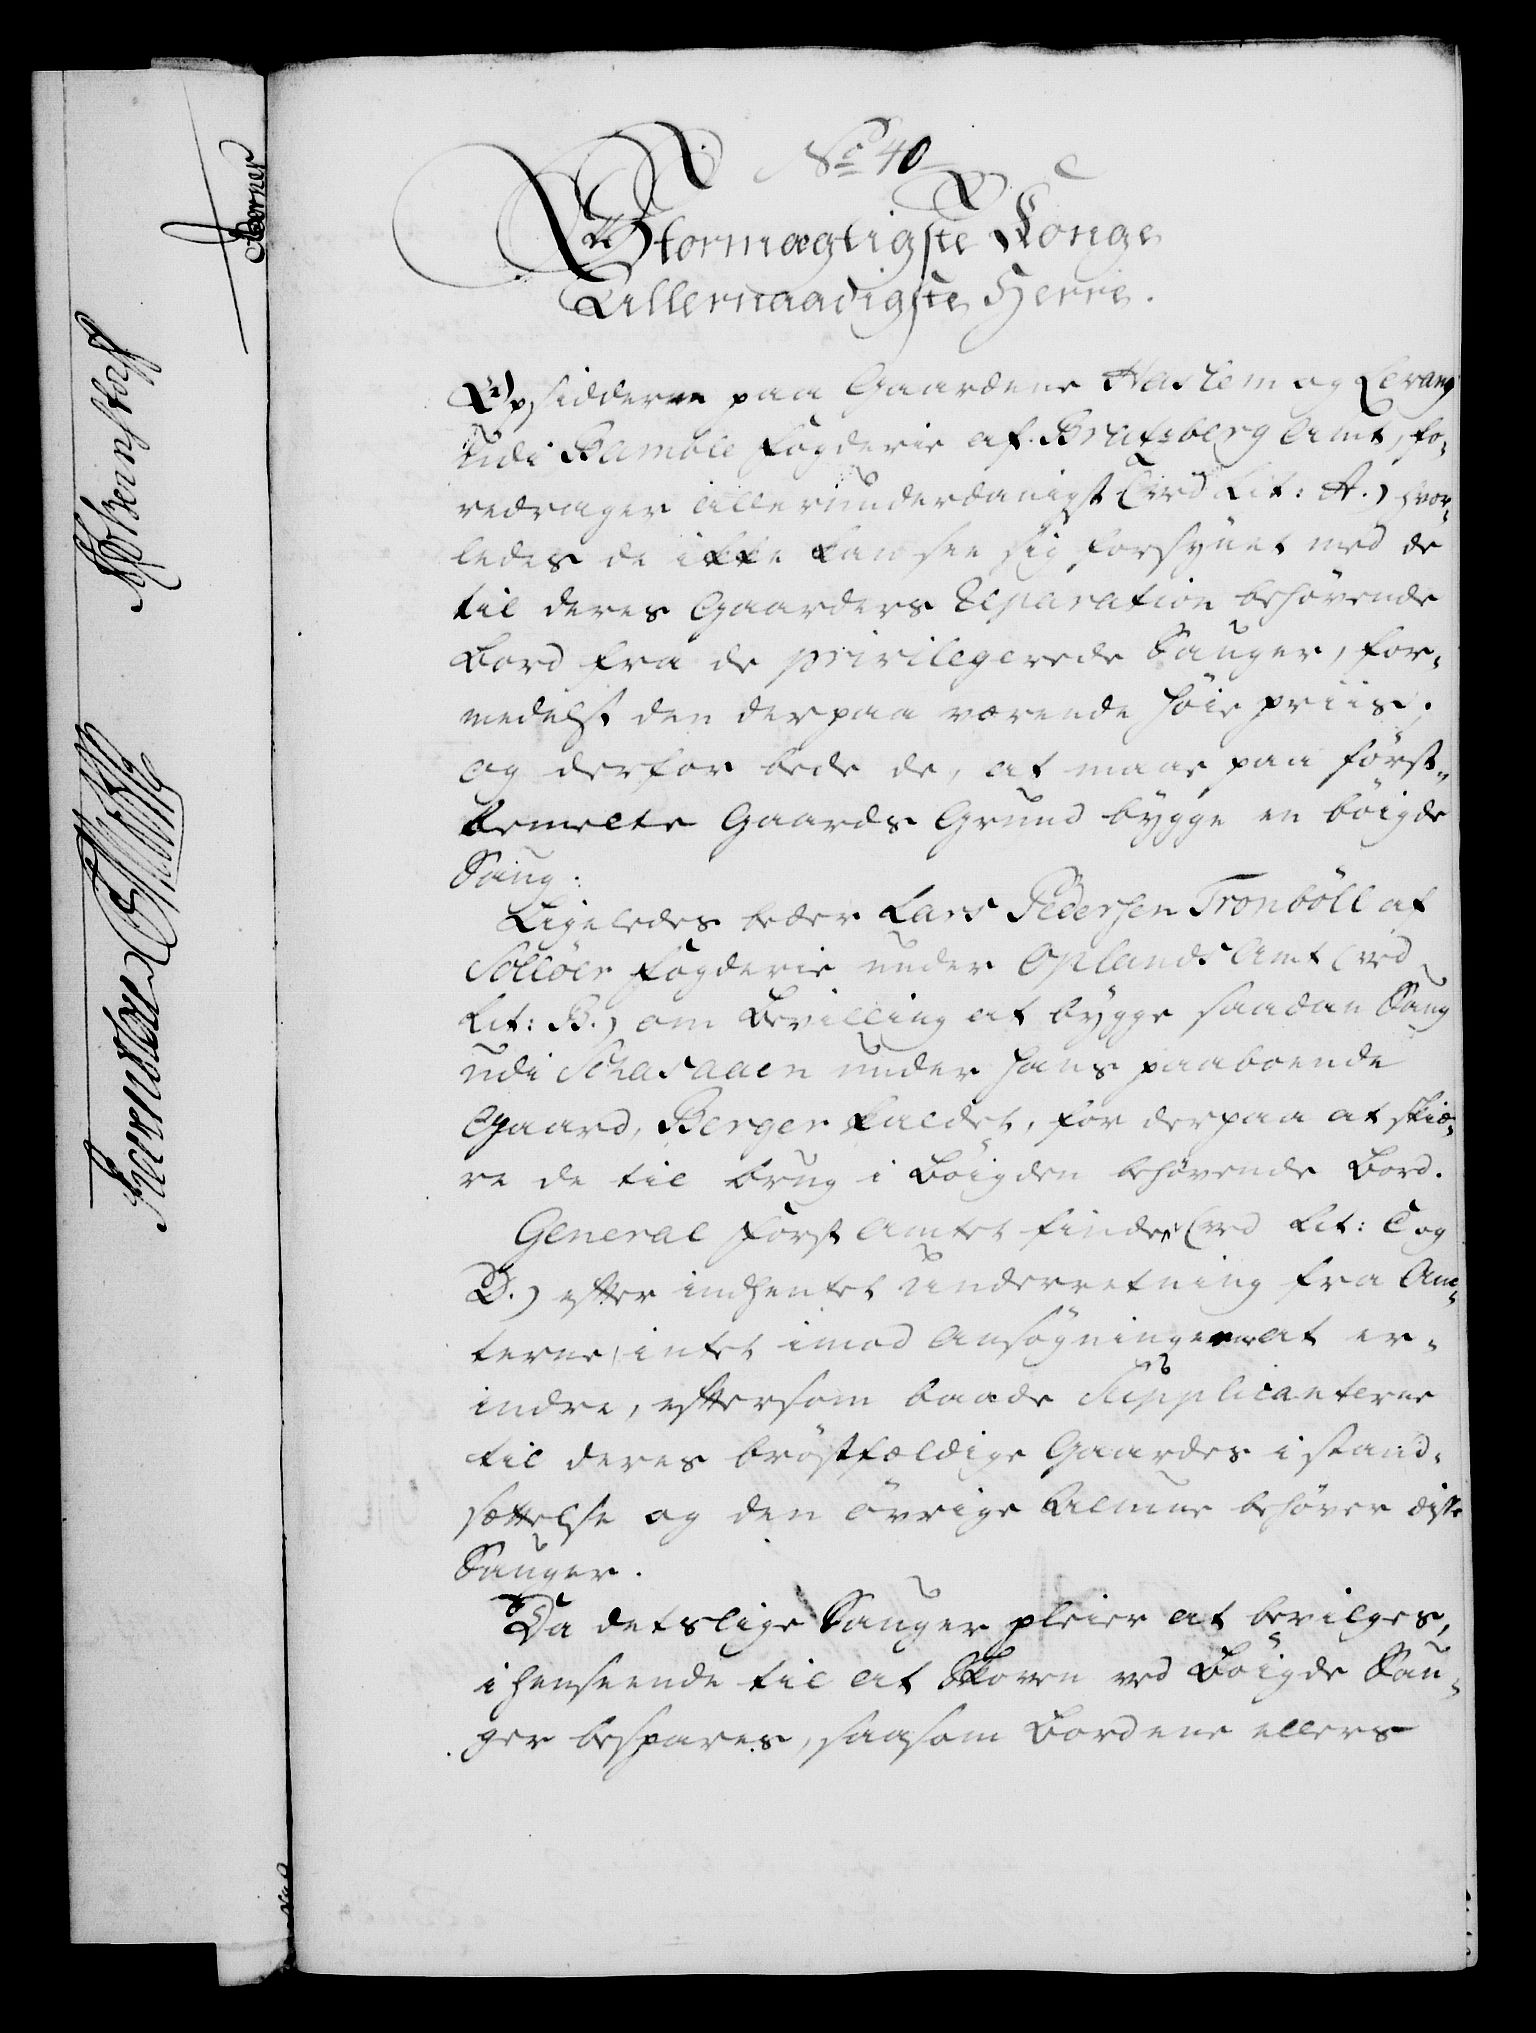 No 40
Stormægtigste Konge
Allernaadigste Herre.
Opsidderne paa Gaardene Haslem og Levang
udi Bamble Fogderie af Bratsberg Amt, fo-
redrager allerunderdanigst (ved Lit: A.) hvor-
ledes de ikke kan see sig forsynet med de
til deres Gaarders Reparation behøvende
Bord fra de privilegerede Sauger, for-
medelst den derpaa værende høie priis;
og derfor bede de, at maae paa først-
bemelte Gaards Grund bygge en bøigde
Saug.
Ligeledes beder Lars Pedersen Tronböll af
Solløer Fogderie under Oplands Amt (ved
Lit: B.) om Bevilling at bygge saadan Saug
udi Schasaaen under hans paaboende
Gaard, Berger kaldet, for derpaa at skiæ-
re de til brug i Bøigden behøvende Bord.
General Forst Amtet finder (ved Lit: C og
D.) efter indhentet Underretning fra Am-
terne, intet imod Ansøgningerne at er-
indre, eftersom baade Supplicanterne
til deres brøstfældige Gaardes i stand-
sættelse og den øvrige Almue behøver disse
Sauger.
Da detslige Sauger pleier at bevilges,
i henseende til at Skoven ved Bøigde Sau-
ger bespares, saasom Bordene ellers